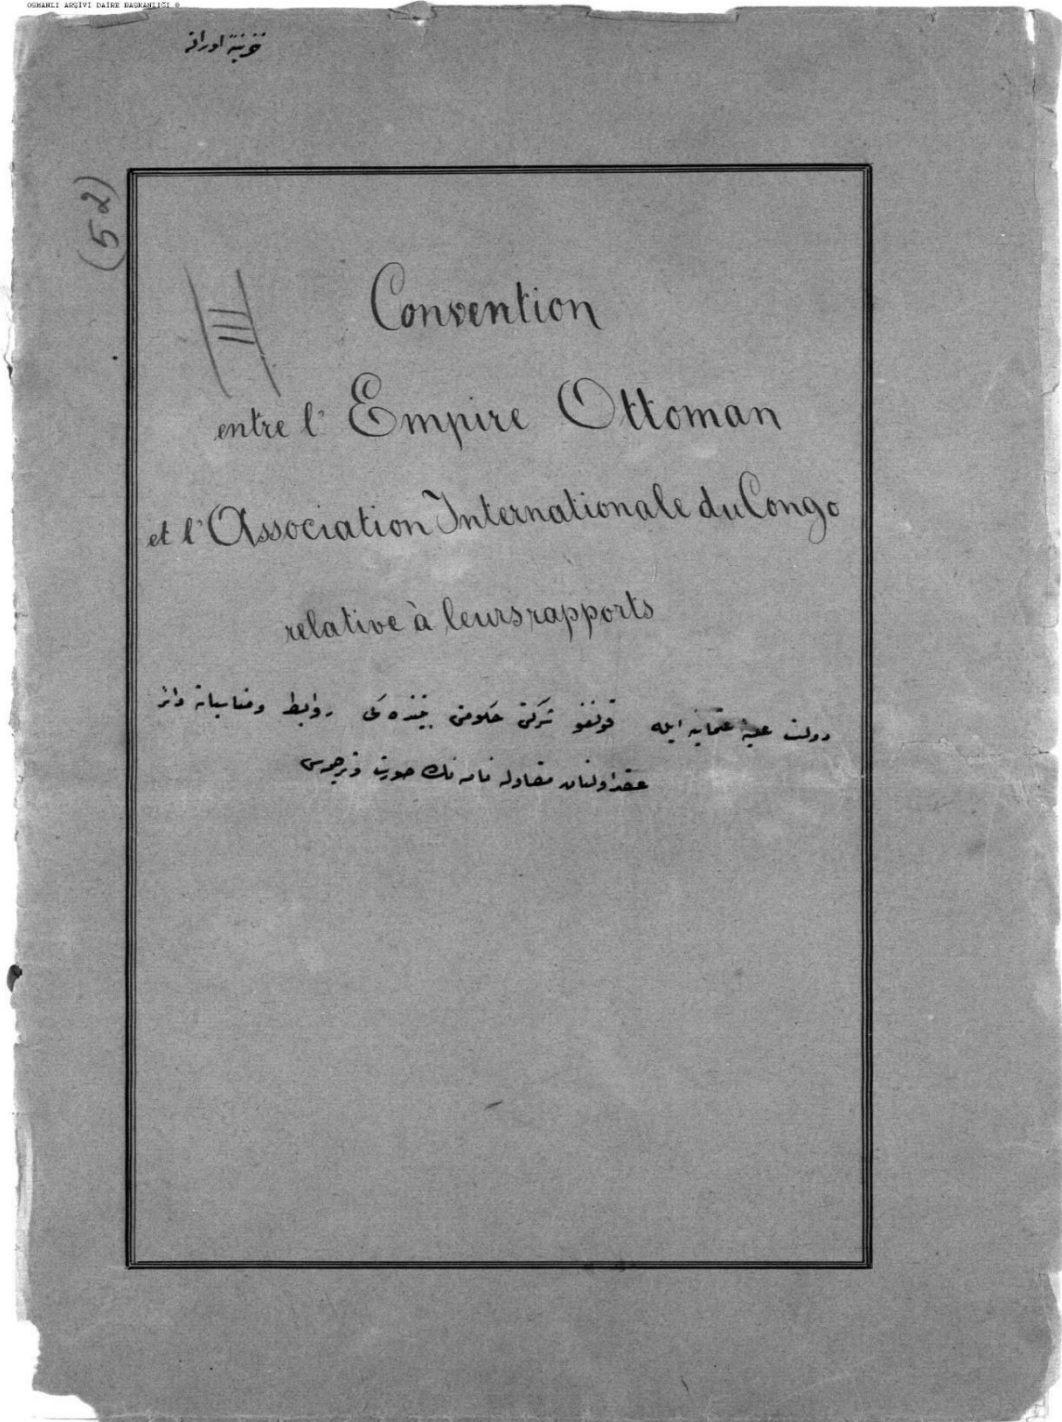 OSMANLI ARŞİVİ DAİRE BAŞKANLIĞI ©
خزينۀ اوراق
(52)
III
Convention
entre l' Empire Ottoman
et l' Association Internationale du Congo
relative à leurs rapports
دولت عليۀ عثمانيه ايله قونغو شركتى حكومتى بيننده كى روابط و مناسباته دائر
عقد اولنان مقاوله نامه نك صورت و ترجمه سى